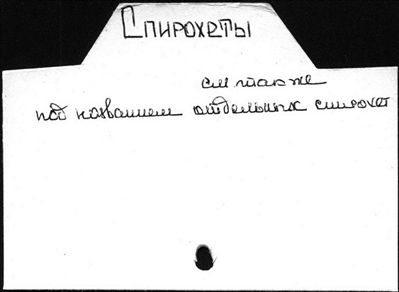 Спирохеты
см также
под названием отдельных спирохет